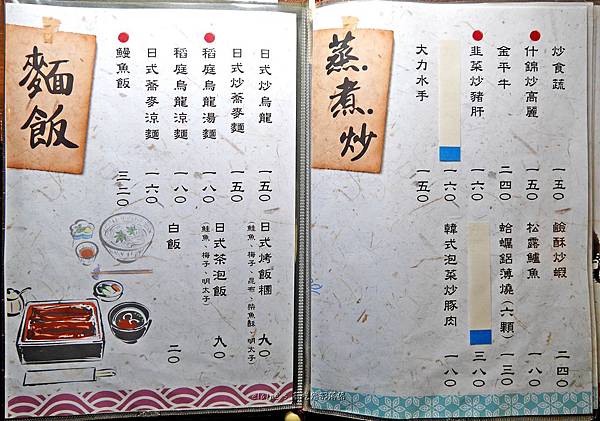 蒸.煮.炒
炒食蔬 一五〇
什錦炒高麗 一五〇
金平牛 二四〇
韭菜炒豬肝 一六〇
一六〇
大力水手 一五〇
鹼酥炒蝦 二四〇
松露鱸魚 一八〇
蛤蠣鋁薄燒(六顆) 一三〇
三八〇
韓式泡菜炒豚肉 一八〇
麵飯
日式炒烏龍 一五〇
日式炒蕎麥麵 一五〇
稻庭烏龍湯麵 一八〇
稻庭烏龍涼麵 一八〇
日式蕎麥涼麵 一六〇
鰻魚飯 三二〇
日式烤飯糰 九〇
(鮭魚、梅子、昆布、柴魚酥、明太子)
日式茶泡飯 九〇
(鮭魚、梅子、明太子)
白飯 二〇